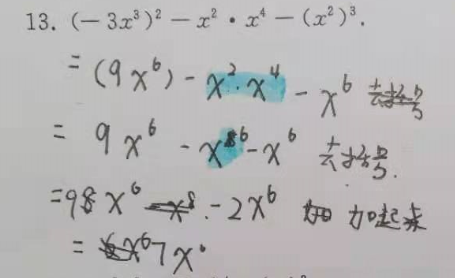 13. (－3x³)²－x²·x⁴－(x²)³.
= (9x⁶) - x²·x⁴ - x⁶ 去括号
= 9x⁶ - x⁶ - x⁶ 去括号.
=9x⁶ - 2x⁶ 加起来
= 7x⁶